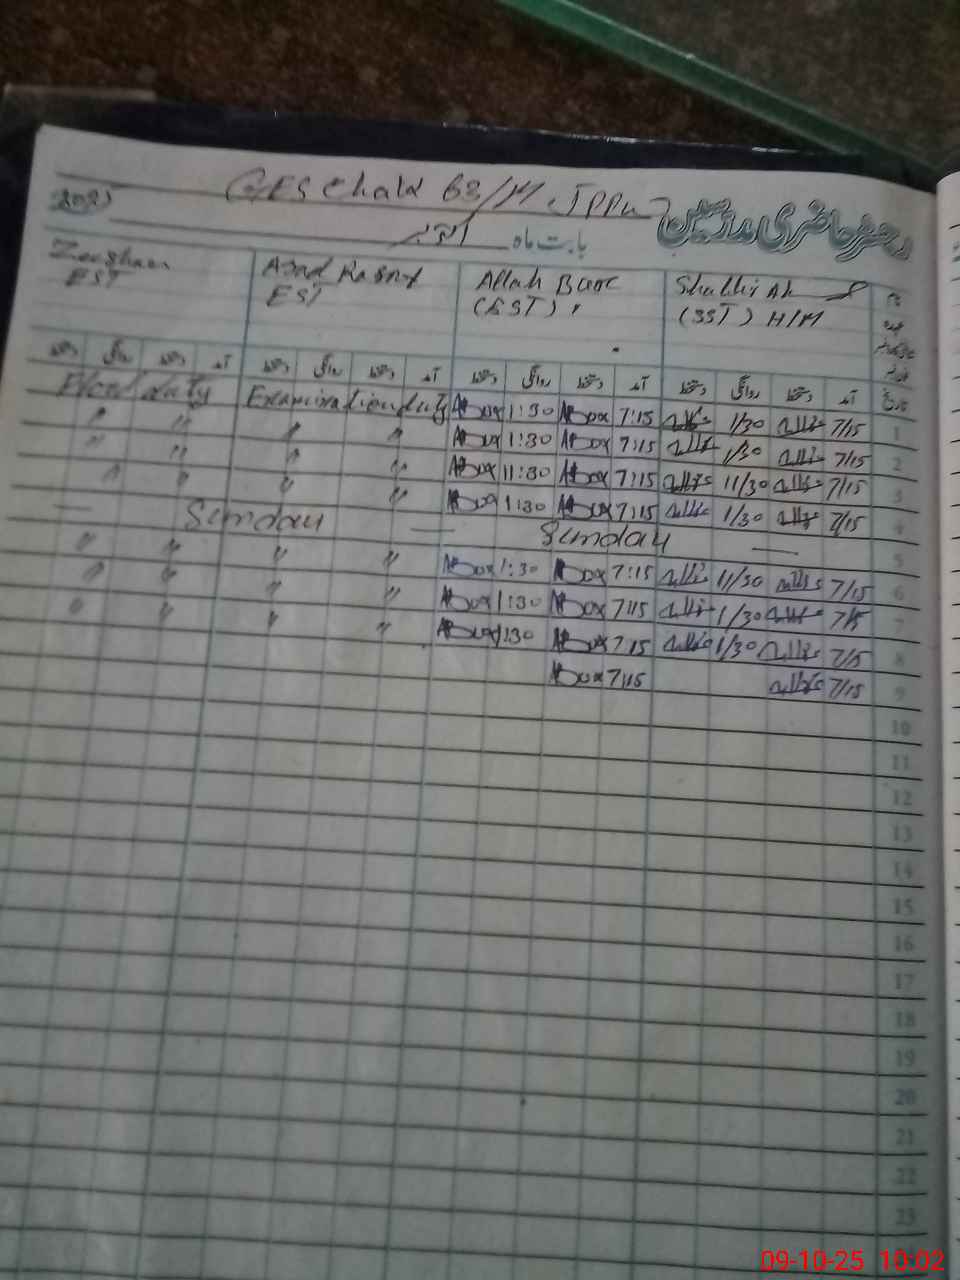 GES Chak 63/M JPPu
دفتر حاضری مدرسین
2025
بابت ماہ اکتوبر
Zeeshan Asad Rasool Allah Bux Shabbir Ah
EST EST (EST) (SST) H/M
دستخط روانگی دستخط آمد دستخط روانگی دستخط آمد دستخط روانگی دستخط آمد دستخط روانگی دستخط آمد تاریخ
Flood duty Examination duty ABux 1:30 ABux 7:15 1/30 7/15 1
" " " " ABux 1:30 ABux 7:15 1/30 7/15 2
" " " " ABux 11:30 ABux 7:15 11/30 7/15 3
" " " " ABux 1:30 ABux 7:15 1/30 7/15 4
— Sunday — Sunday — 5
" " " " ABux 1:30 ABux 7:15 11/30 7/15 6
" " " " ABux 1:30 ABux 7:15 1/30 7/15 7
" " " " ABux 1:30 ABux 7:15 1/30 7/15 8
ABux 7:15 7/15 9
10
11
12
13
14
15
16
17
18
19
20
21
22
23
09-10-25 10:02